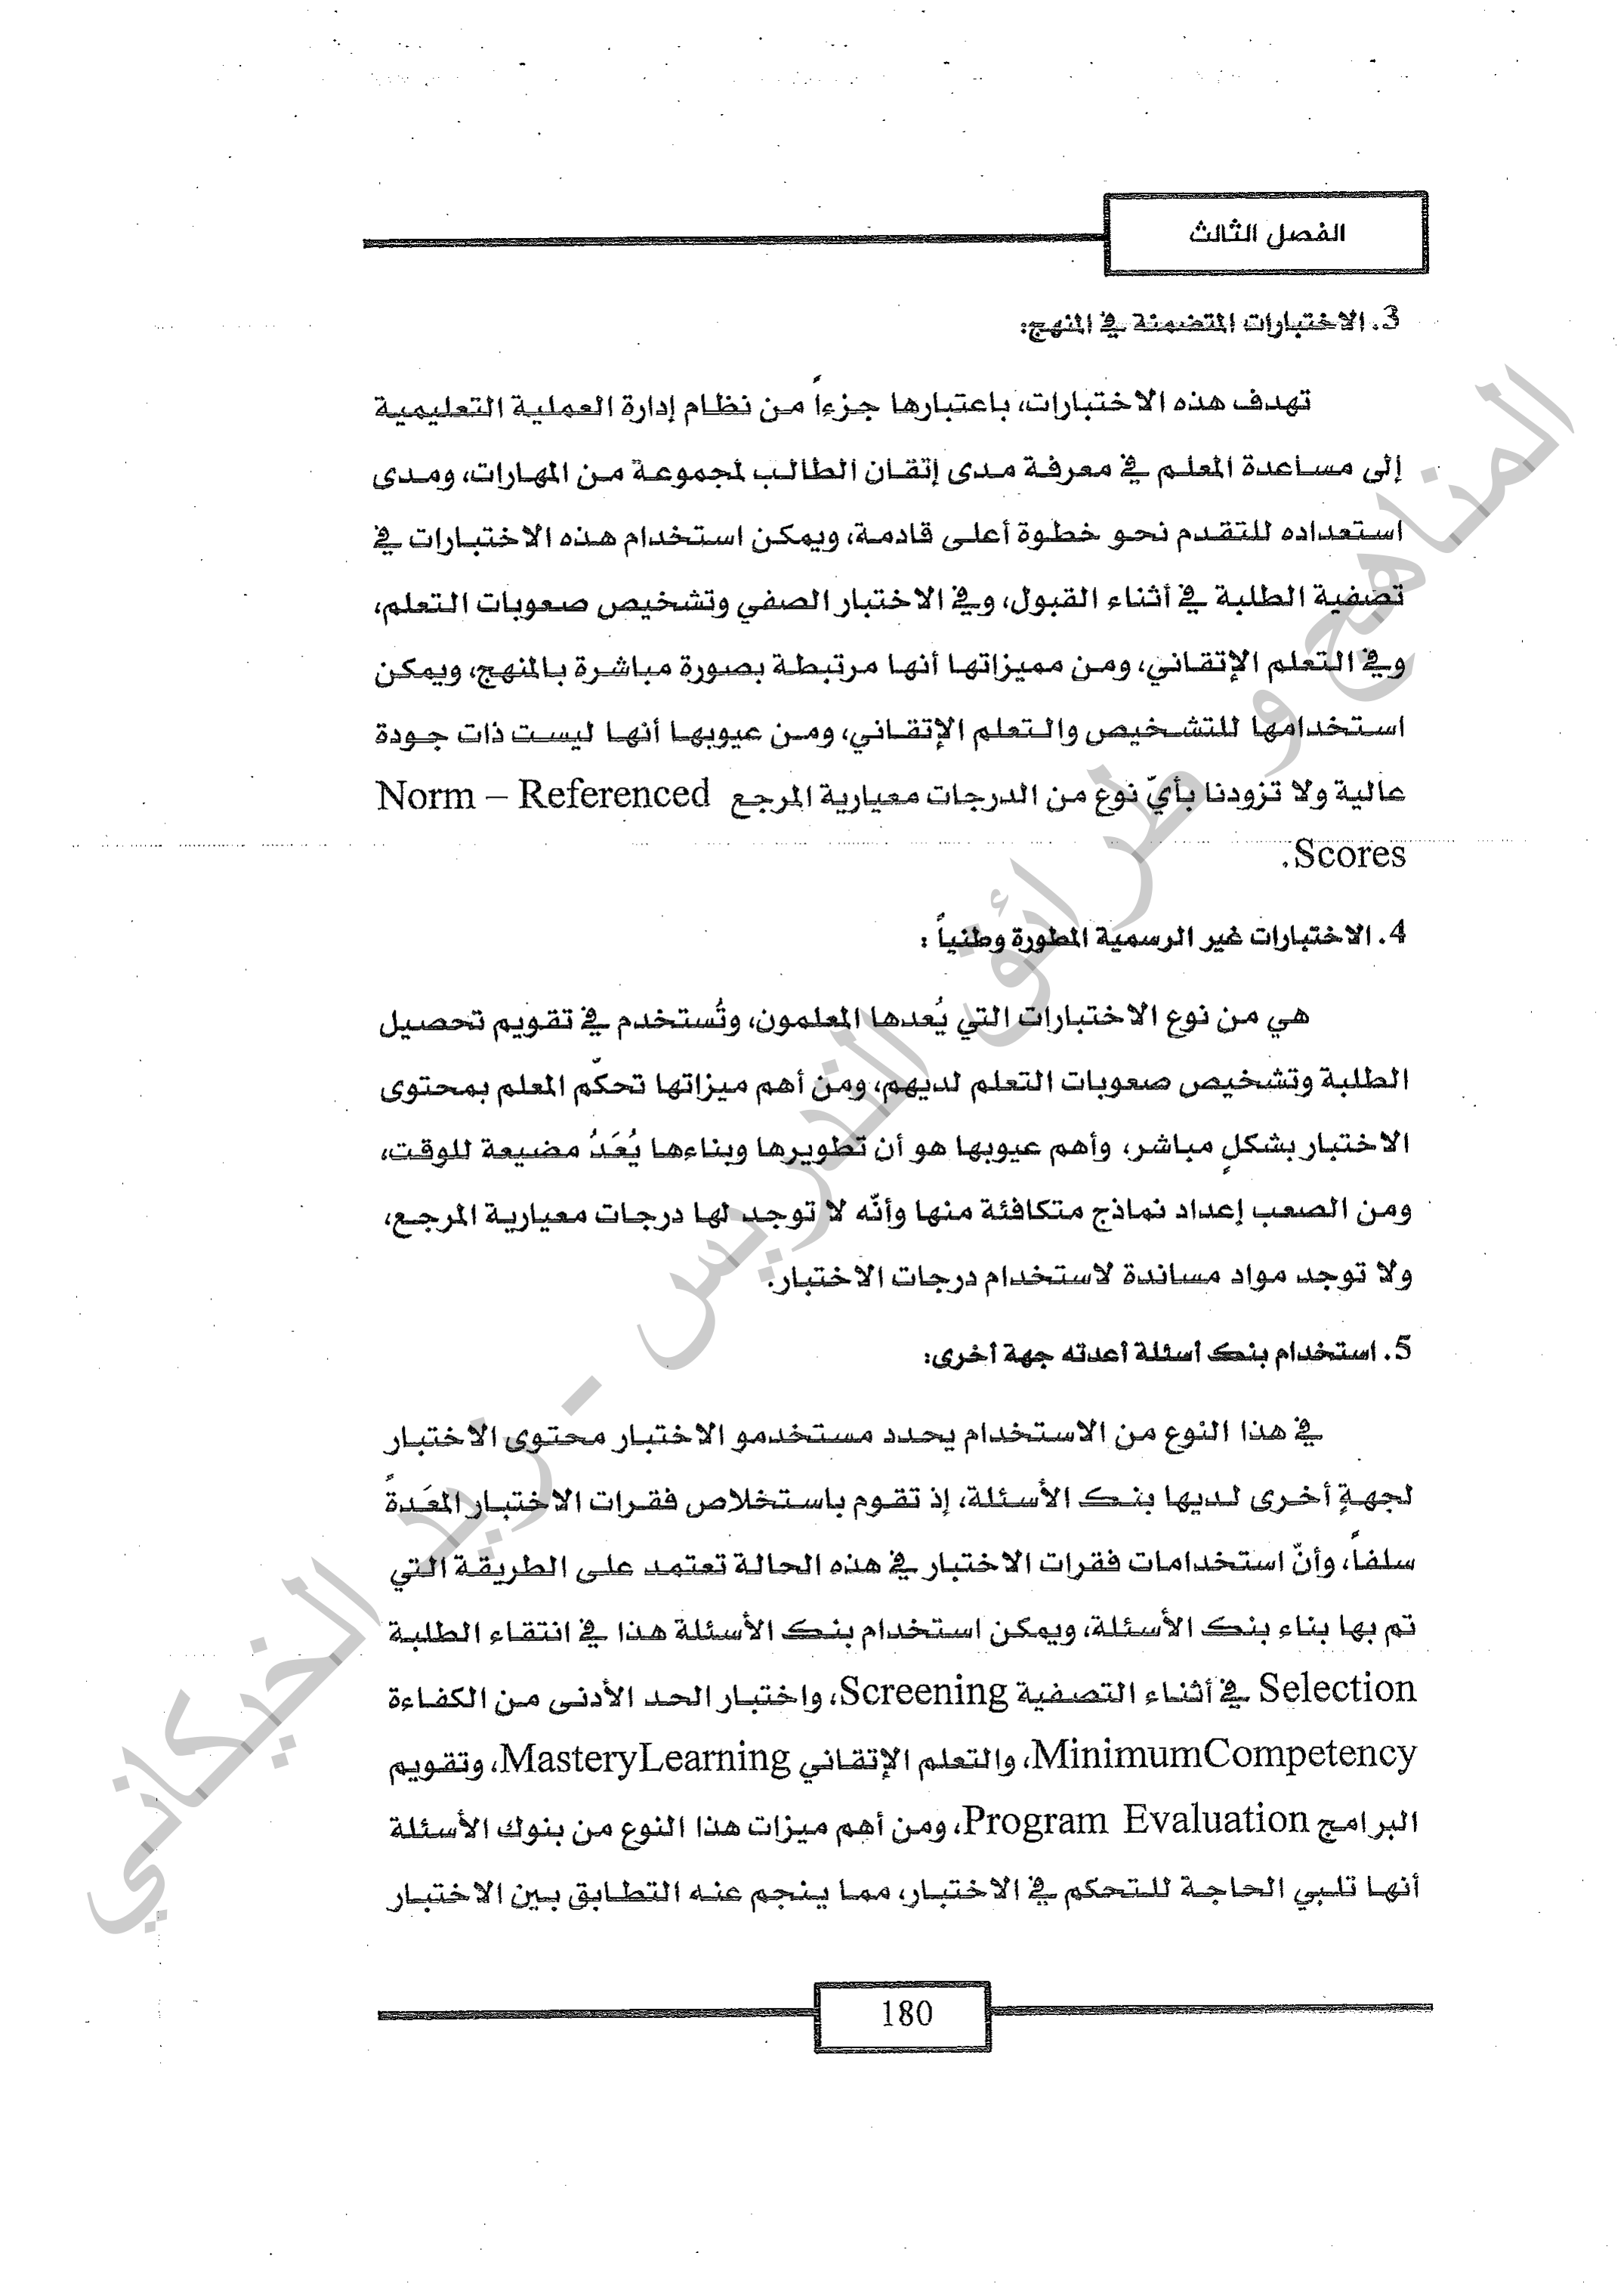 الفصل الثالث
3. الاختبارات المتضمنة في المنهج:
تهدف هذه الاختبارات، باعتبارها جزءاً من نظام إدارة العملية التعليمية
إلى مساعدة المعلم في معرفة مدى إتقان الطالب لمجموعة من المهارات، ومدى
استعداده للتقدم نحو خطوة أعلى قادمة، ويمكن استخدام هذه الاختبارات في
تصفية الطلبة في أثناء القبول، وفي الاختبار الصفي وتشخيص صعوبات التعلم،
وفي التعلم الإتقاني، ومن مميزاتها أنها مرتبطة بصورة مباشرة بالمنهج، ويمكن
استخدامها للتشخيص والتعلم الإتقاني، ومن عيوبها أنها ليست ذات جودة
عالية ولا تزودنا بأيّ نوع من الدرجات معيارية المرجع Norm – Referenced
Scores.
4. الاختبارات غير الرسمية المطورة وطنياً :
هي من نوع الاختبارات التي يُعدها المعلمون، وتُستخدم في تقويم تحصيل
الطلبة وتشخيص صعوبات التعلم لديهم، ومن أهم ميزاتها تحكّم المعلم بمحتوى
الاختبار بشكلٍ مباشر، وأهم عيوبها هو أن تطويرها وبناءها يُعَدُ مضيعة للوقت،
ومن الصعب إعداد نماذج متكافئة منها وأنّه لا توجد لها درجات معيارية المرجع،
ولا توجد مواد مساندة لاستخدام درجات الاختبار.
5. استخدام بنك أسئلة أعدته جهة أخرى:
في هذا النوع من الاستخدام يحدد مستخدمو الاختبار محتوى الاختبار
لجهةٍ أخرى لديها بنك الأسئلة، إذ تقوم باستخلاص فقرات الاختبار المعَدةً
سلفاً، وأنّ استخدامات فقرات الاختبار في هذه الحالة تعتمد على الطريقة التي
تم بها بناء بنك الأسئلة، ويمكن استخدام بنك الأسئلة هذا في انتقاء الطلبة
Selection في أثناء التصفية Screening، واختبار الحد الأدنى من الكفاءة
MinimumCompetency، والتعلم الإتقاني MasteryLearning، وتقويم
البرامج Program Evaluation، ومن أهم ميزات هذا النوع من بنوك الأسئلة
أنها تلبي الحاجة للتحكم في الاختبار، مما ينجم عنه التطابق بين الاختبار
180
المناهج و طرائق التدريس - زيد الخيكاني